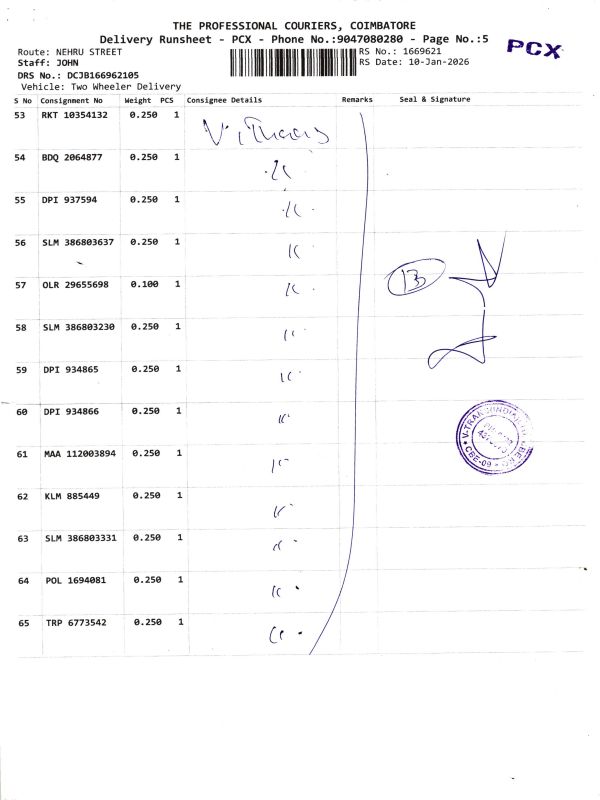 THE PROFESSIONAL COURIERS, COIMBATORE
Delivery Runsheet - PCX - Phone No.:9047080280 - Page No.:5
PCX
Route: NEHRU STREET
RS No.: 1669621
Staff: JOHN
RS Date: 10-Jan-2026
DRS No.: DCJB166962105
Vehicle: Two Wheeler Delivery
S No Consignment No Weight PCS Consignee Details Remarks Seal & Signature
53 RKT 10354132 0.250 1
54 BDQ 2064877 0.250 1
55 DPI 937594 0.250 1
56 SLM 386803637 0.250 1
57 OLR 29655698 0.100 1
13
58 SLM 386803230 0.250 1
59 DPI 934865 0.250 1
60 DPI 934866 0.250 1
61 MAA 112003894 0.250 1
CBE-09
62 KLM 885449 0.250 1
63 SLM 386803331 0.250 1
64 POL 1694081 0.250 1
65 TRP 6773542 0.250 1